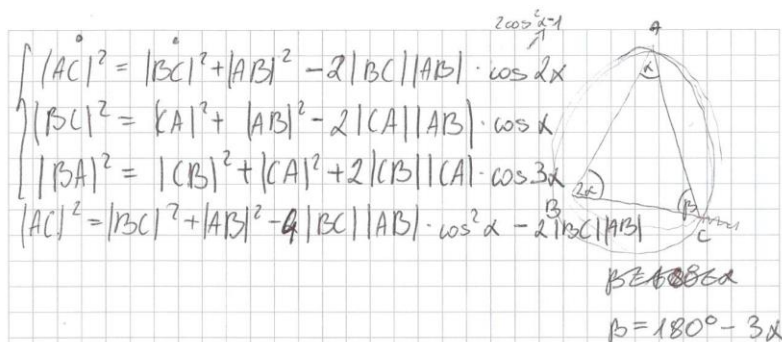 2cos²α-1
A
|AC|² = |BC|² + |AB|² - 2|BC||AB| · cos 2α
α
|BC|² = |CA|² + |AB|² - 2|CA||AB| · cos α
|BA|² = |CB|² + |CA|² + 2|CB||CA| · cos 3α
2α
β
B
C
|AC|² = |BC|² + |AB|² - 4|BC||AB| · cos² α - 2|BC||AB|
β = 180° - 3α